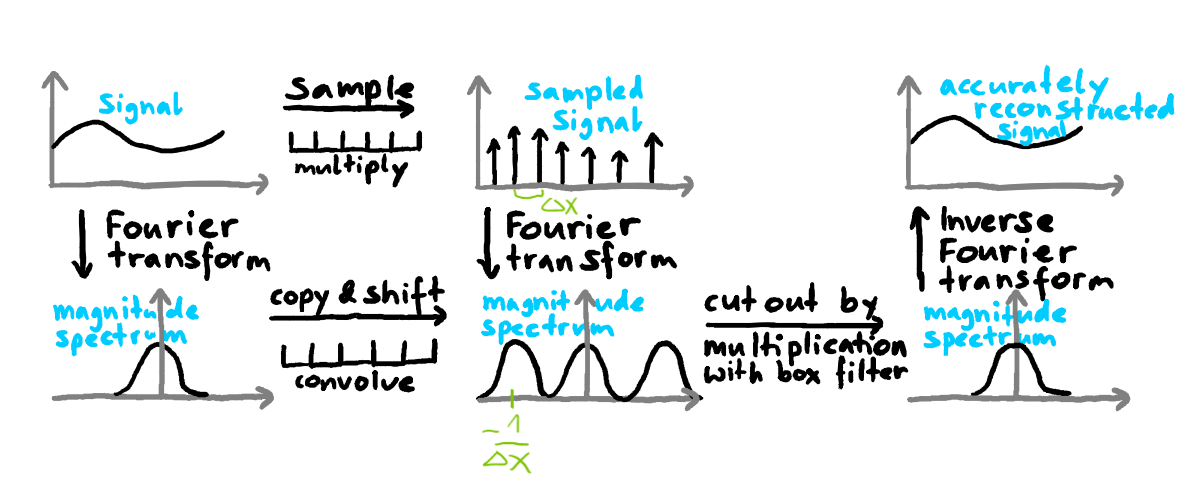 Signal
Sample
multiply
Sampled
Signal
Δx
accurately
reconstructed
signal
Fourier
transform
Fourier
transform
Inverse
Fourier
transform
magnitude
spectrum
copy & shift
convolve
magnitude
spectrum
cut out by
multiplication
with box filter
magnitude
spectrum
-1
Δx